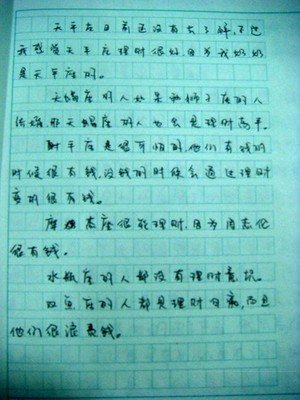 天平座目前还没有去了解,不过
我感觉天平座理财很好因为我奶奶
是天平座的。
天蝎座的人如果和狮子座的人
结婚那天蝎座的人也会是理财高手。
射手座是很可怕的他们有钱的
时候很有钱,没钱的时候会通过理财
变的很有钱。
摩羯座很能理财,因为周志伦
很有钱。
水瓶座的人都没有理财意识。
双鱼座的人都是理财白痴,而且
他们很浪费钱。